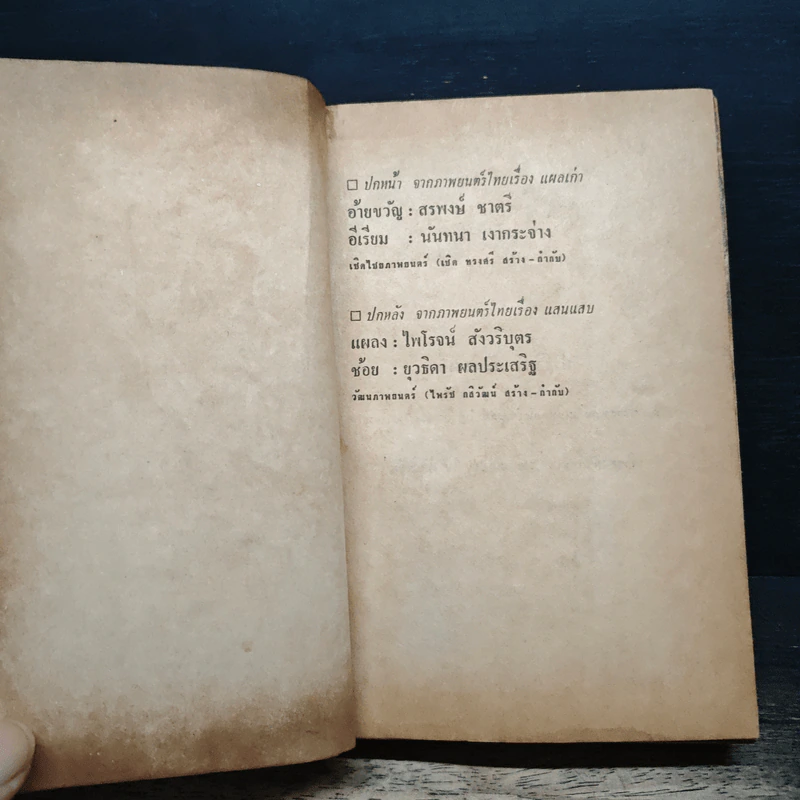 □ ปกหน้า จากภาพยนตร์ไทยเรื่อง แผลเก่า
อ้ายขวัญ : สรพงษ์ ชาตรี
อีเรียม : นันทนา เงากระจ่าง
เชิดไชยภาพยนตร์ (เชิด ทรงศรี สร้าง - กำกับ)
□ ปกหลัง จากภาพยนตร์ไทยเรื่อง แสนแสบ
แผลง : ไพโรจน์ สังวริบุตร
ช้อย : ยุวธิดา ผลประเสริฐ
วัฒนภาพยนตร์ (ไพรัช กสิวัฒน์ สร้าง - กำกับ)